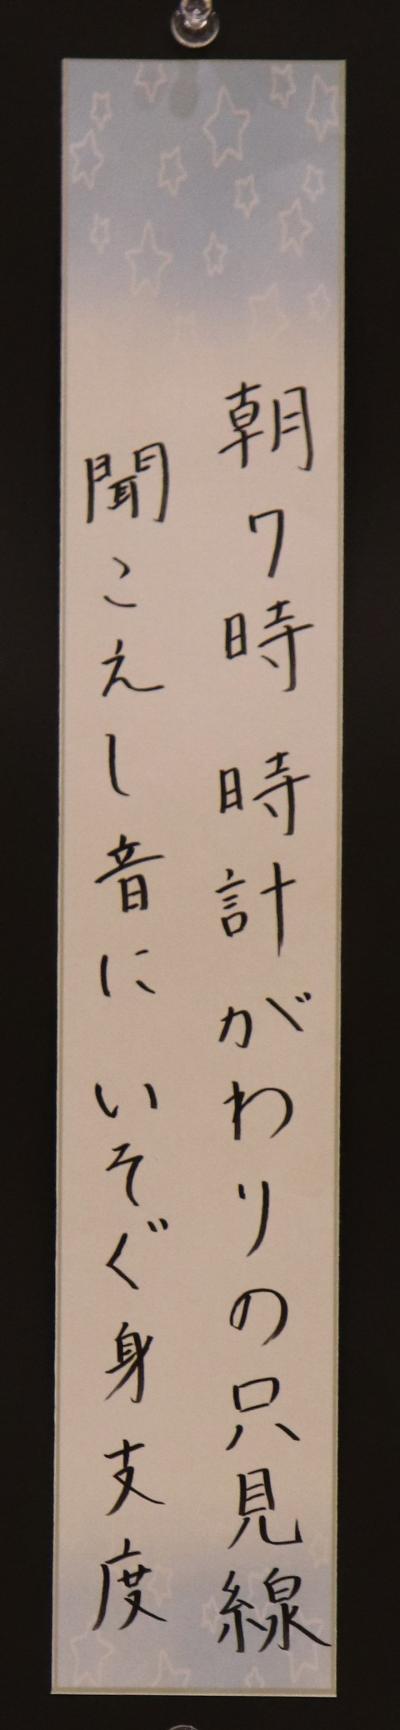 朝7時 時計がわりの只見線
聞こえし音に いそぐ身支度